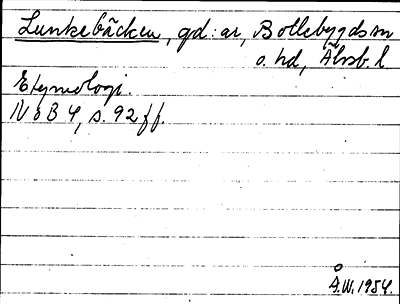 Lunkebäcken, gd:ar, Bollebygds sn
o. hd, Älvsb. l
Etymologi.
NoB 4, s. 92 ff.
Å.W. 1954.